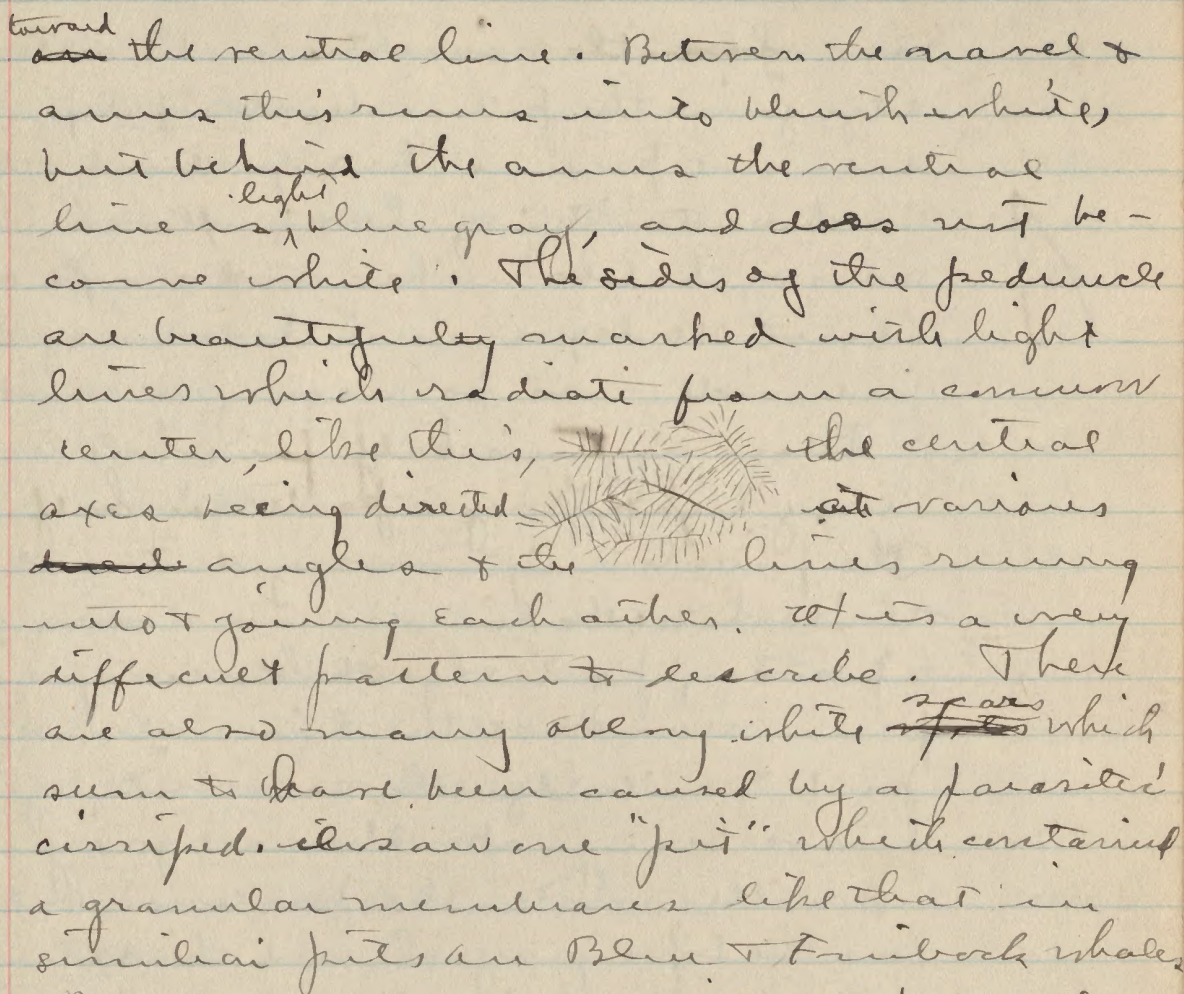 toward
on the ventral line. Between the navel &
anus this runs into bluish white,
but behind the anus the ventral
light
line is, blue gray, and does not be-
come white. The sides of the peduncle
are beautifully marked with light
lines which radiate from a common
center, like this, the central
axes being directed at various
angles & the lines runing
into & joining each other. It is a very
difficult pattern to describe. There
scars
are also many oblong white spots which
seem to have been caused by a parasitic
cirriped. I saw one "pit" which contained
a granular membranes like that in
similiar pits on Blue & Finback whales